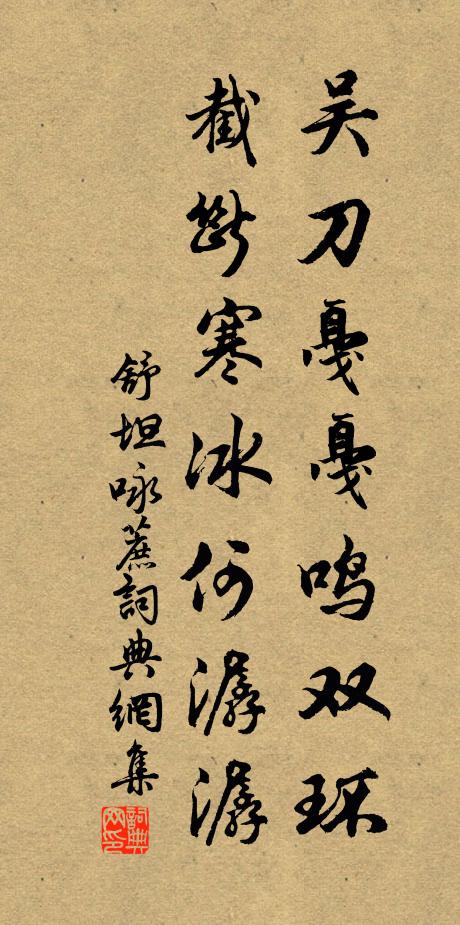 吴刀戛戛鸣双环
截断寒冰何潺潺
舒坦咏蔗詞典網集
詞典
网印